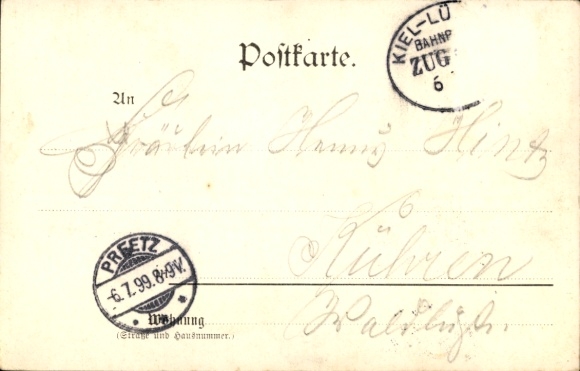 Postkarte.
KIEL-LÜ
BAHNP
ZUG
6
An
Fräulein Henny Hintz
Kühren
PREETZ
-6.7.99.8-9V.
Wohnung
(Straße und Hausnummer.)